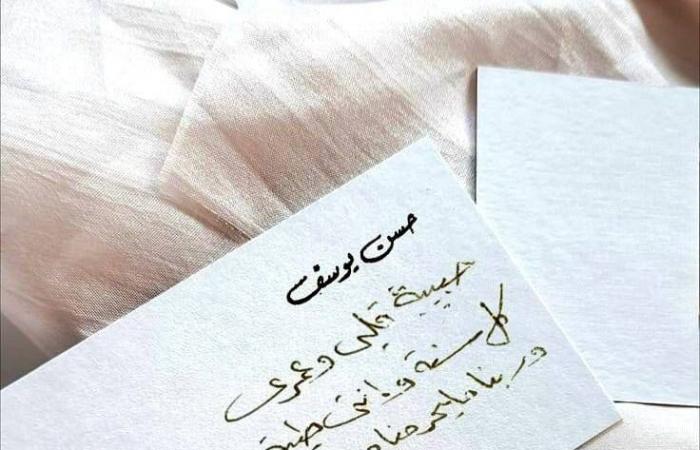 حسن يوسف
حبيبة قلبى وعمرى
كل سنة وانتى طيبة
وربنا مايحرمنا